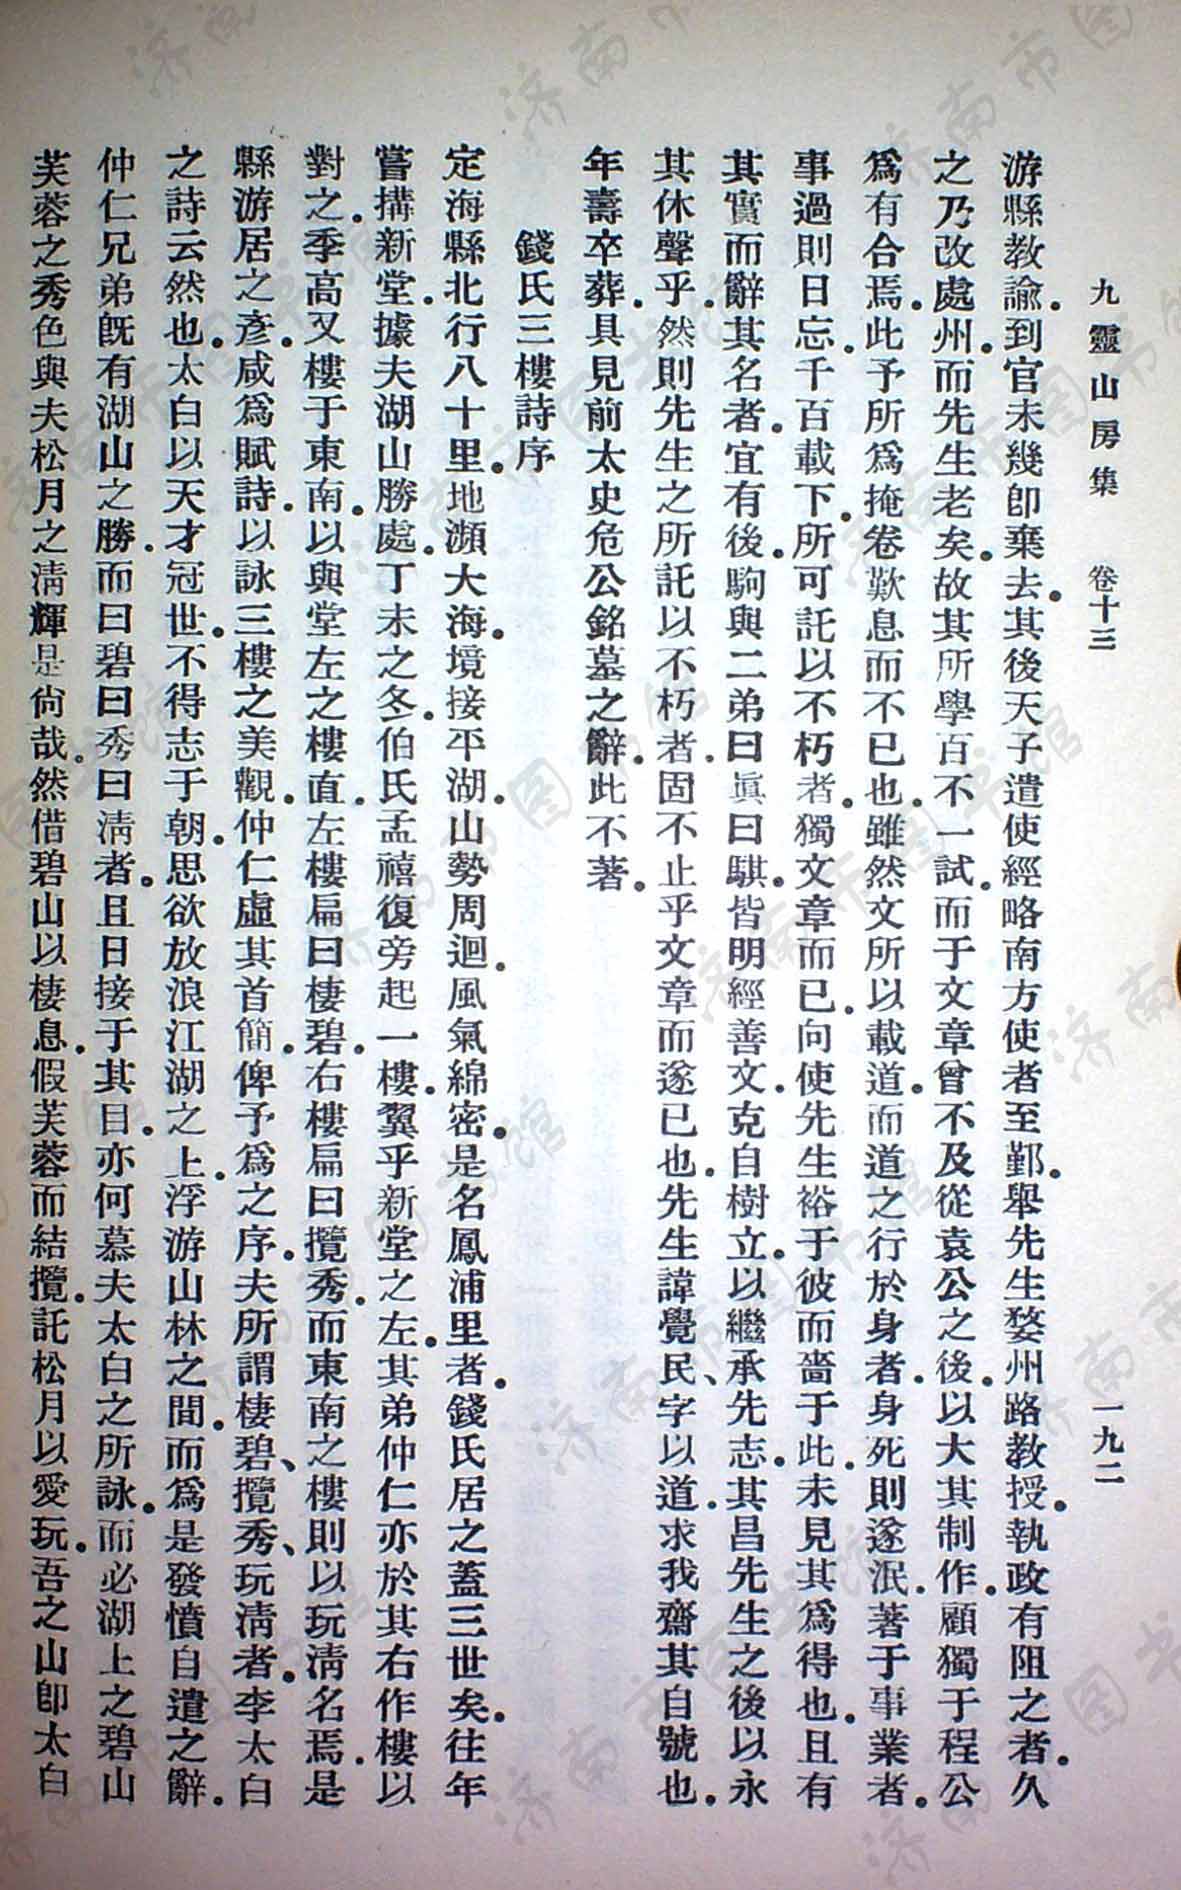 九靈山房集　卷十三　一九二
游縣教諭。到官未幾卽棄去。其後天子遣使經略南方使者至鄞。舉先生婺州路教授。執政有阻之者。久
之乃改處州。而先生老矣。故其所學百不一試。而于文章曾不及從袁公之後。以大其制作。顧獨于程公
爲有合焉。此予所爲掩卷歎息而不已也。雖然文所以載道。而道之行於身者。身死則遂泯。著于事業者。
事過則日忘。千百載下。所可託以不朽者。獨文章而已。向使先生裕于彼而嗇于此。未見其爲得也。且有
其實而辭其名者。宜有後。駒與二弟曰眞曰騏。皆明經善文。克自樹立。以繼承先志。其昌先生之後以永
其休聲乎。然則先生之所託以不朽者。固不止乎文章而遂已也。先生諱覺民、字以道。求我齋其自號也。
年壽卒葬。具見前太史危公銘墓之辭。此不著。
錢氏三樓詩序
定海縣北行八十里。地瀕大海。境接平湖。山勢周迴。風氣綿密。是名鳳浦里者。錢氏居之蓋三世矣。往年
嘗搆新堂。據夫湖山勝處。丁未之冬。伯氏孟禧復旁起一樓。翼乎新堂之左。其弟仲仁亦於其右作樓以
對之。季高又樓于東南。以與堂左之樓直。左樓扁曰棲碧。右樓扁曰攬秀。而東南之樓則以玩淸名焉。是
縣游居之彥。咸爲賦詩。以詠三樓之美觀。仲仁虛其首簡。俾予爲之序。夫所謂棲碧、攬秀、玩淸者。李太白
之詩云然也。太白以天才冠世。不得志于朝。思欲放浪江湖之上。浮游山林之間。而爲是發憤自遣之辭。
仲仁兄弟旣有湖山之勝。而曰碧曰秀曰淸者。且日接于其目。亦何慕夫太白之所詠。而必湖上之碧山
芙蓉之秀色與夫松月之淸輝是尙哉。然借碧山以棲息。假芙蓉而結攬。託松月以愛玩。吾之山卽太白